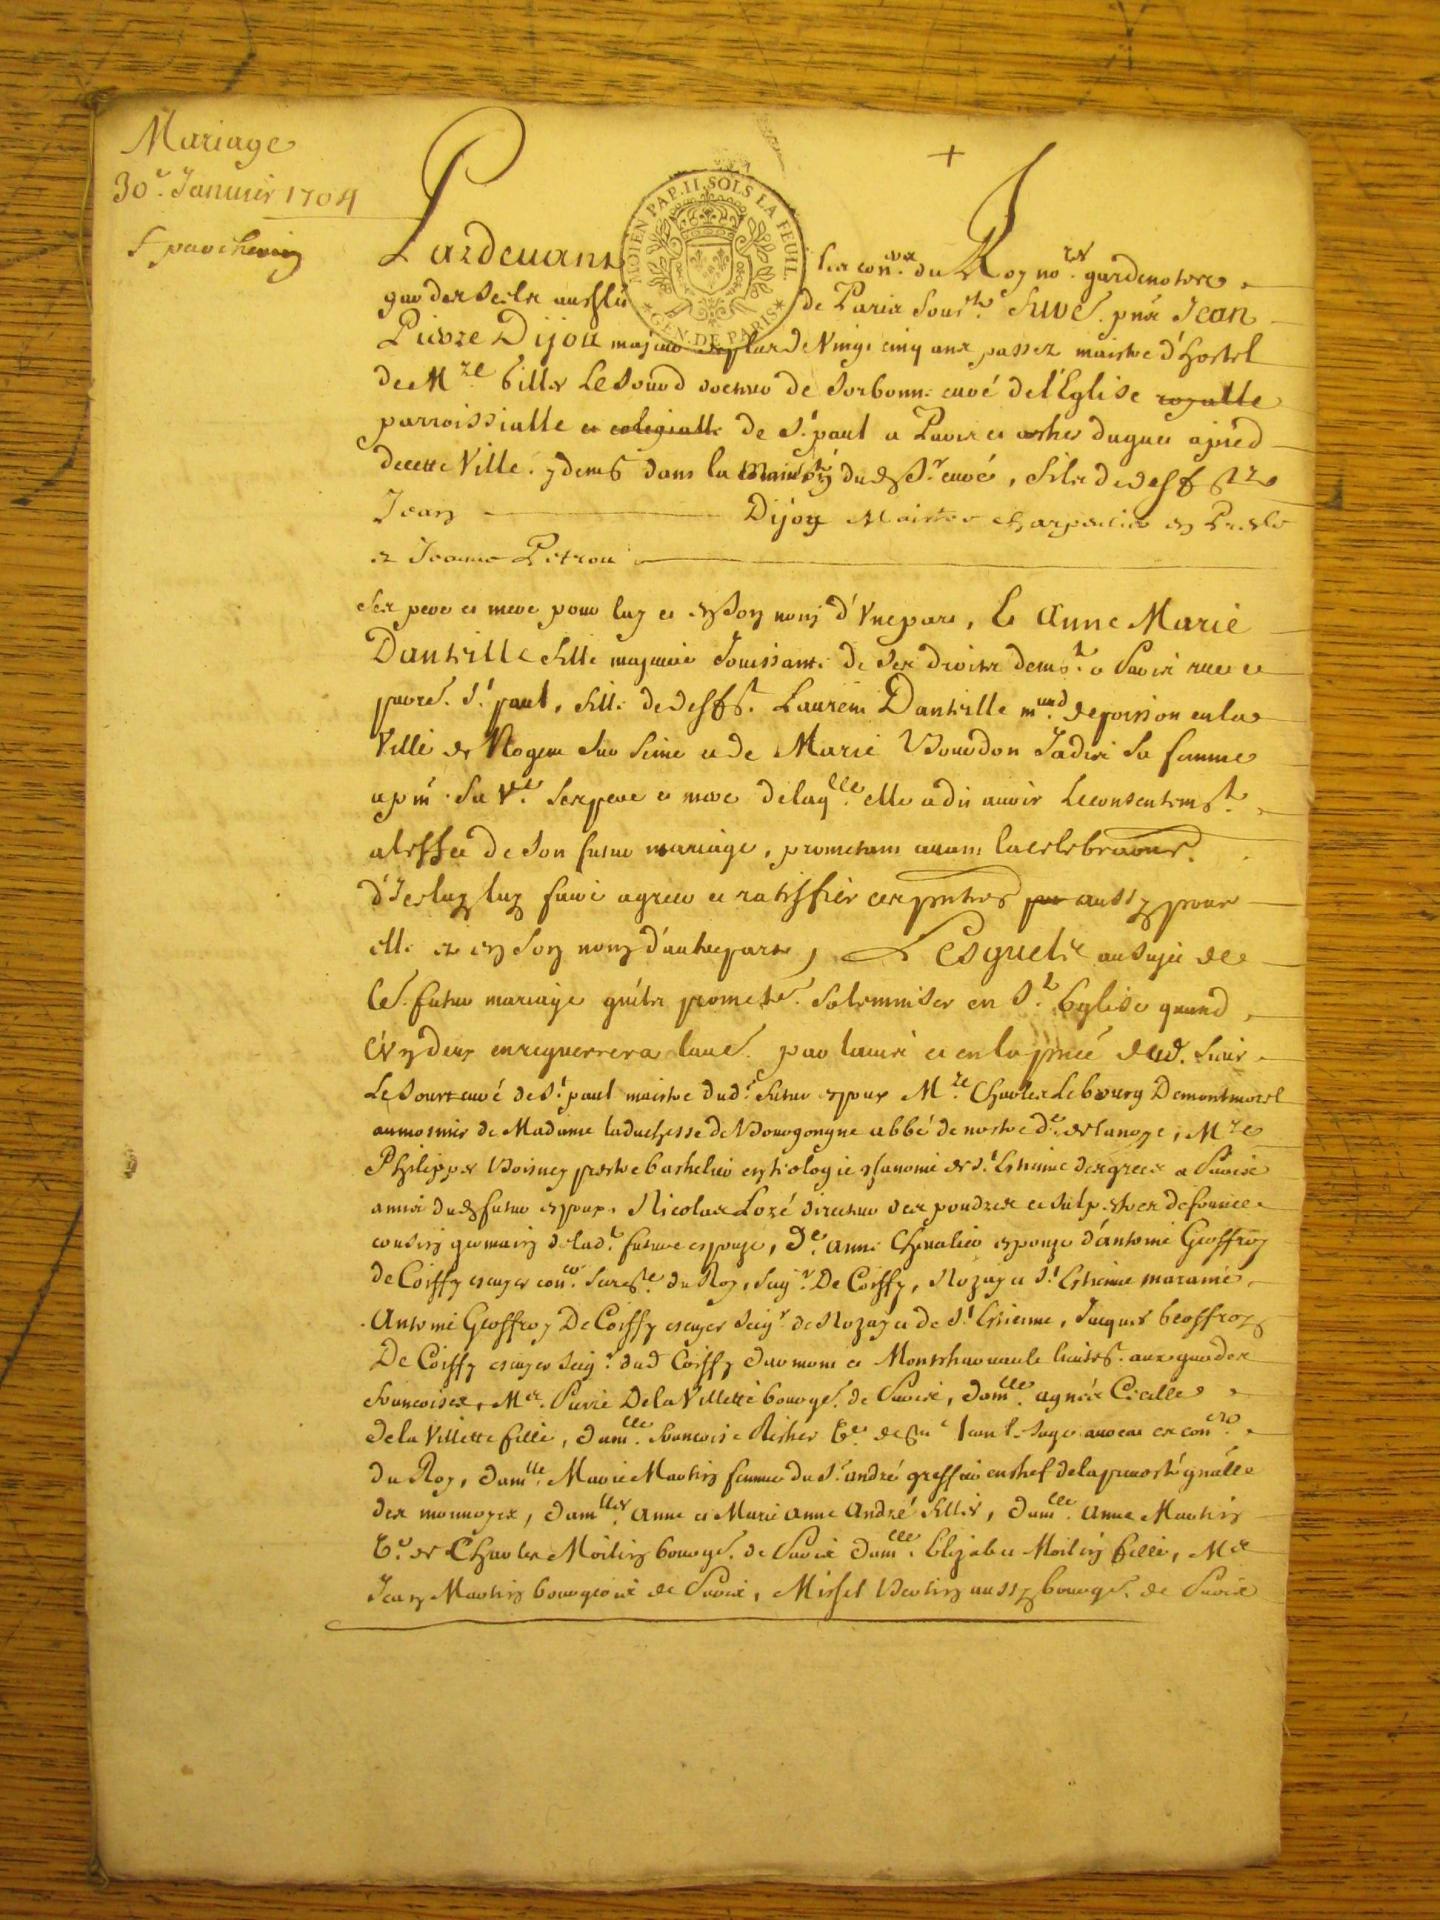 Mariage
30e. Janvier 1704
MOIEN PAP. II. SOLS LA FEUIL.
GEN. DE PARIS
Pardevant les coners. du Roy nores. gardenottes
gardescels au chlet de Paris Souse. Fut pnt Jean
Pierre Dijon majeur de plus de Vingt cinq ans passez maistre d'hostel
de Mre Gilles Le Sourd docteur de Sorbonne curé de l'Eglise royalle
parroissialle et colegialle de St. paul a Paris
de cette Ville. y demt dans la maison dud Sr. curé, fils de deff
Jean Dijon Maistre charpentier
et Jeanne Petrou
Ses pere et mere pour luy et en Son nom d'Vne part, Et Anne Marie
Danville fille majeure Jouissante de Ses droits demte. a Paris rue et
parre. St. paul, fille de deff. Laurent Danville mand. de poisson en la
Ville de Nogent Sur Seine et de Marie Bourdon Jadis Sa femme
a pnt. Sa Ve. Ses pere et mere de laqlle. elle a dit avoir le consentemt.
a l'effet de Son futur mariage, promettant avant la celebration
d'Icelluy luy faire agreer et ratiffier ces pntes par aussy pour
elle et en Son nom d'autre part, Lesquels au Sujet de
Ce futur mariage qu'ils promettent Solemniser en Ste. Eglise quand
l'Vn d'eux en requerrera l'autre par l'avis et en la pnce dud. Sieur
Le Sourd curé de St. paul maistre dud. futur epoux Mre. Charles Lebourg Demontmorel
aumosnier de Madame la duchesse de Bourgongne abbé de nostre de. de lanoye, Mre
Philippes Boisney prestre bachelier en teologie chanoine de St. Estienne des grecs a Paris
amis dud futur epoux, Nicolas Lozé directeur des poudres et salpestres de france
cousin germain de lade. future epouze, De. Anne Chevalier epouze d'Antoine Geoffroy
de Coiffy escuyer coner. Secrete. du Roy, Seigr. De Coiffy, Rozay et St. Estienne maraine,
Antoine Geoffroy De Coiffy escuyer Seigr. de Rozay et de St. Estienne, Jacques Geoffroy
De Coiffy escuyer Seigr. dud Coiffy Daumont et lieutet. aux gardes
francoises, Me. Pierre De la Villette bourgs. de Paris, damlle. agnés Cecille
de la Villette fille, damlle. francoise Richer Ve. de Me Jean le Sage avocat es conls.
du Roy, damlle. Marie Martin femme du Sr. andré greffier en chef de la prevosté gnalle
des monnoyes, damlles. Anne et Marie Anne André filles, damlle. Anne Martin
Ve. de Charles Moitin bourgs. de Paris damlle. Elizabet Moitin fille, Me
Jean Martin bourgeois de Paris, Michel Bertin aussy bourgs. de Paris